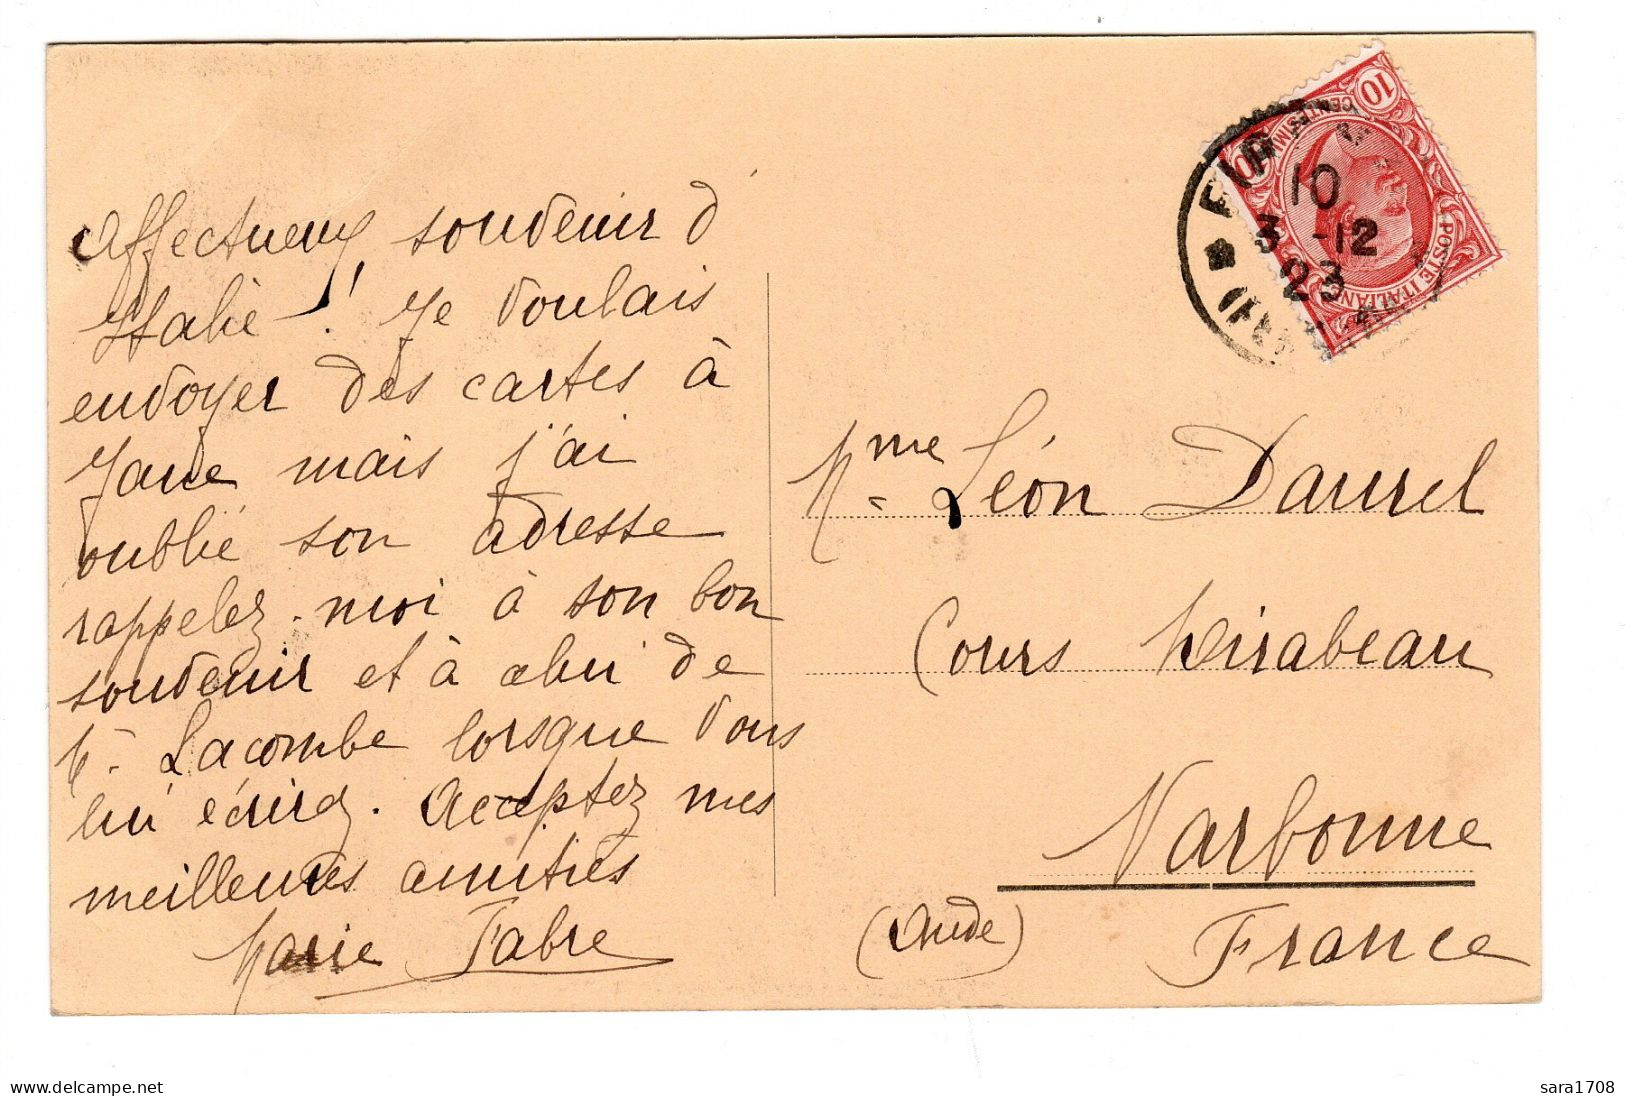 Affectueux souvenir d'
Italie ! Je voulais
envoyer des cartes à
Jane mais j'ai
oublié son adresse
rappelez-moi à son bon
souvenir et à celui de
M. Lacombe lorsque vous
lui écrirez. Acceptez mes
meilleures amitiés
Marie Fabre
10
CENTESIMI
10
POSTE ITALIANE
FIR
10
3 -12
23
Mme Léon Daurel
Cours Mirabeau
Narbonne
(Aude) France
delcampe.net
sara1708